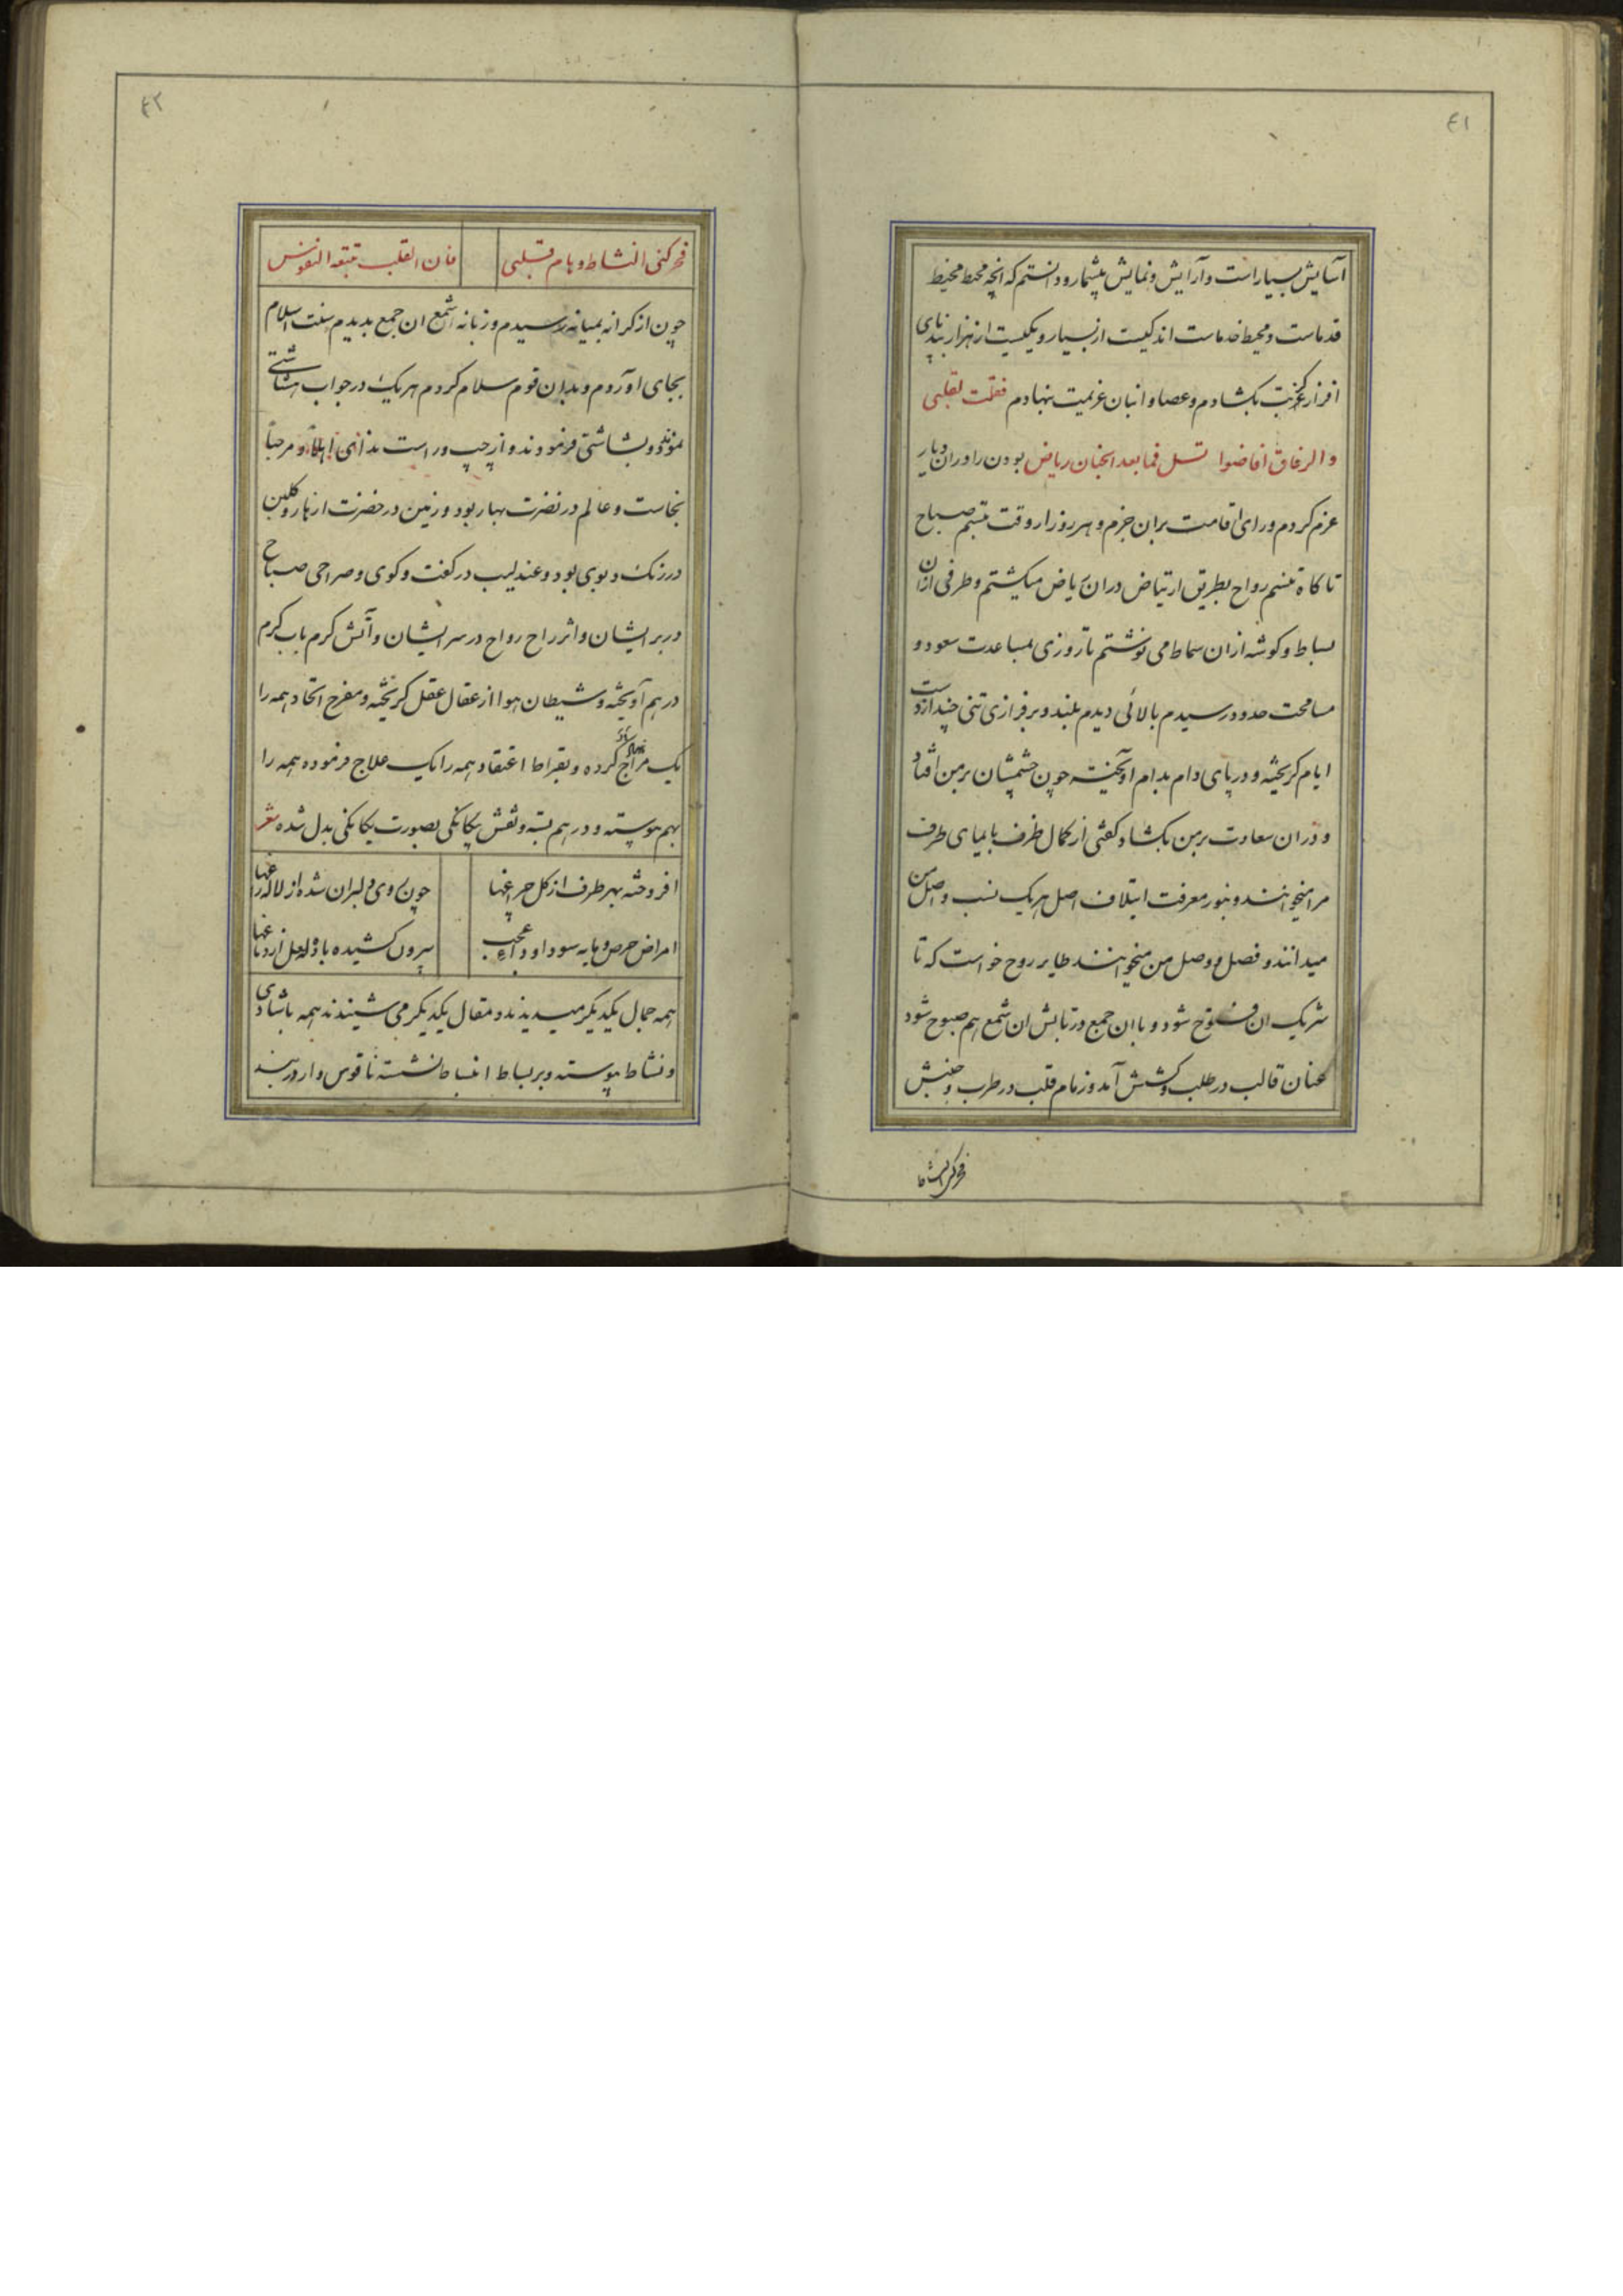 ٤١
آسایش بسیار است و آرایش و نمایش بیشمار و دانستم که انچه محط محیط
قدماست و محیط خدماست اندکیست از بسیار و یکیست از هزار بندبای
افزار غربت بکشادم و عصا و انبان عزیمت بنهادم فقلت لقلبی
والرفاق افاضوا تسل فما بعد الجنان ریاض بودن را دران دیار
عزم کردم و رای اقامت بران جزم و هر روز از وقت تبسم صباح
تا کاه تنسم رواح بطریق ارتیاض دران ریاض میکشتم و طرفی ازان
بساط و کوشه ازان سماط می نوشتم تا روزی بمساعدت سعود و
مسامحت حدود رسیدم بالائی دیدم بلند و بر فرازی تنی چند از دست
ایام کریخته و در پای دام بدام اویخته چون چشمشان بر من افتاد
و در ان سعادت بر من بکشاد کفتی از کمال ظرف بایمای طرف
مرا میخواهند و بنور معرفت ایتلاف اصل هریک نسب و اصل من
میدانند و فصل و وصل من میخواهند طایر روح خواست که تا
شریک ان فتوح شود و با ان جمع در تابش ان شمع هم صبوح شود
عنان قالب در طلب و کشش آمد و زمام قلب در طرب و جنبش
فحرکنی النشاط
٤٢
فحرکنی النشاط و هام قلبی فان القلب تتبعه النفوس
چون از کرانه بمیانه رسیدم و زبانه شمع ان جمع بدیدم سنت اسلام
بجای اوردم و بدان قوم سلام کردم هریک در جواب هشاشتی
نمودند و بشاشتی فرمودند و از چپ و راست ندای اهلا و مرحبا
بخاست و عالم در نضرت بهار بود و زمین در خضرت ازهار و کلبن
در رنک و بوی بود و عندلیب در کفت و کوی و صراحی صباح
در بر ایشان و اثر راح رواح در سر ایشان و آتش کرم باب کرم
در هم آویخته و شیطان هوا از عقال عقل کریخته و مفرح اتحاد همه را
یک مزاج کرده و بقراط اعتقاد همه را یک علاج فرموده همه را
بهم پیوسته و در هم بسته و نقش بیکانکی بصورت یکانکی بدل شده شعر
افروخته بهر طرف از کل چراغها چون روی دلبران شده از لاله راغها
امراض حرص و مایه سودا و عجب بیرون کشیده باده لعل از دماغها
همه جمال یکدیکر میدیدند و مقال یکدیکر می شنیدند همه با شادی
و نشاط پیوسته و بر بساط انبساط نشسته ناقوس وار در بند